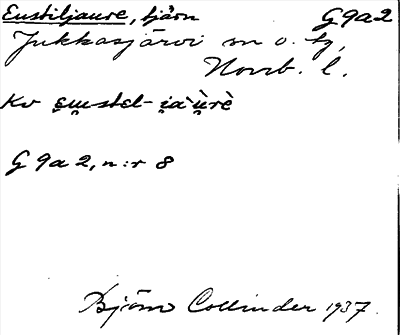 Eustiljaure, tjärn G 9a2
Jukkasjärvi sn o. tg,
Norrb. l.
Kv
G 9a 2, n:r 8
Björn Collinder 1937.